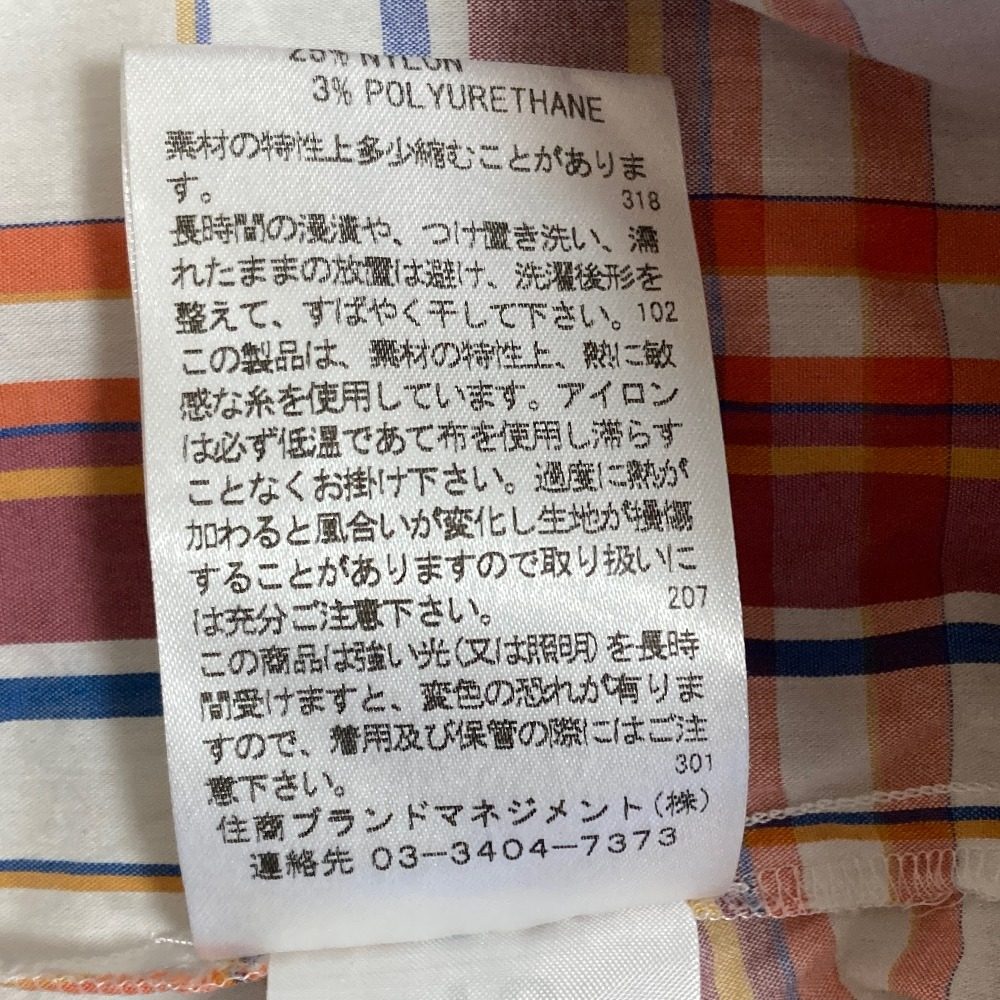 25% NYLON
3% POLYURETHANE
素材の特性上多少縮むことがありま
す。 318
長時間の浸漬や、つけ置き洗い、濡
れたままの放置は避け、洗濯後形を
整えて、すばやく干して下さい。102
この製品は、素材の特性上、熱に敏
感な糸を使用しています。アイロン
は必ず低温であて布を使用し滞らす
ことなくお掛け下さい。過度に熱が
加わると風合いが変化し生地が損傷
することがありますので取り扱いに
は充分ご注意下さい。 207
この商品は強い光(又は照明)を長時
間受けますと、変色の恐れが有りま
すので、着用及び保管の際にはご注
意下さい。 301
住商ブランドマネジメント(株)
連絡先 03-3404-7373